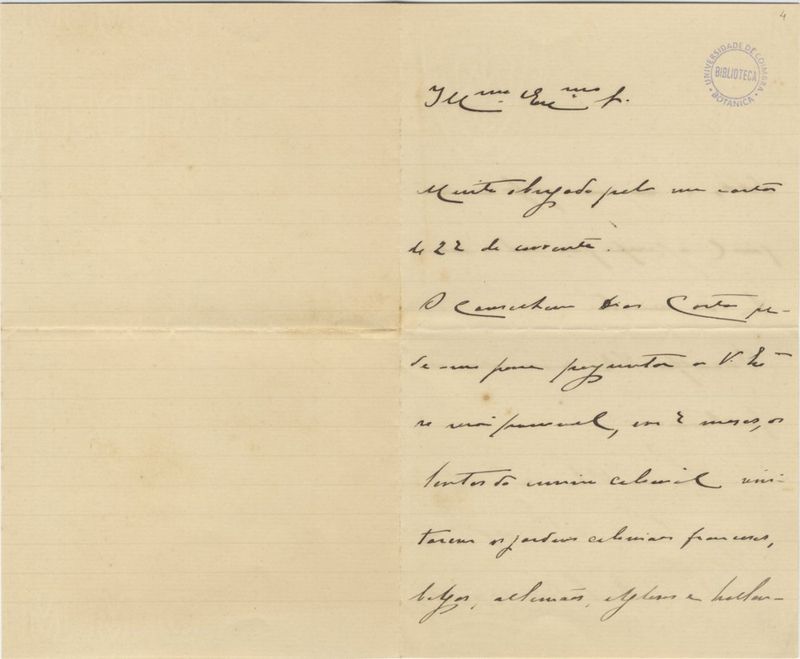 4
UNIVERSIDADE DE COIMBRA
BIBLIOTECA
BOTANICA
Illmo. Exmo. Sr.
Muito obrigado pela sua carta
de 22 do corrente.
O Conselheiro Dias Costa pe-
de-me para perguntar a V. Exa
se será possivel, em 2 meses, os
lentes do ensino colonial visi-
tarem os jardins coloniaes franceses,
belgas, allemães, ingleses e hollan-